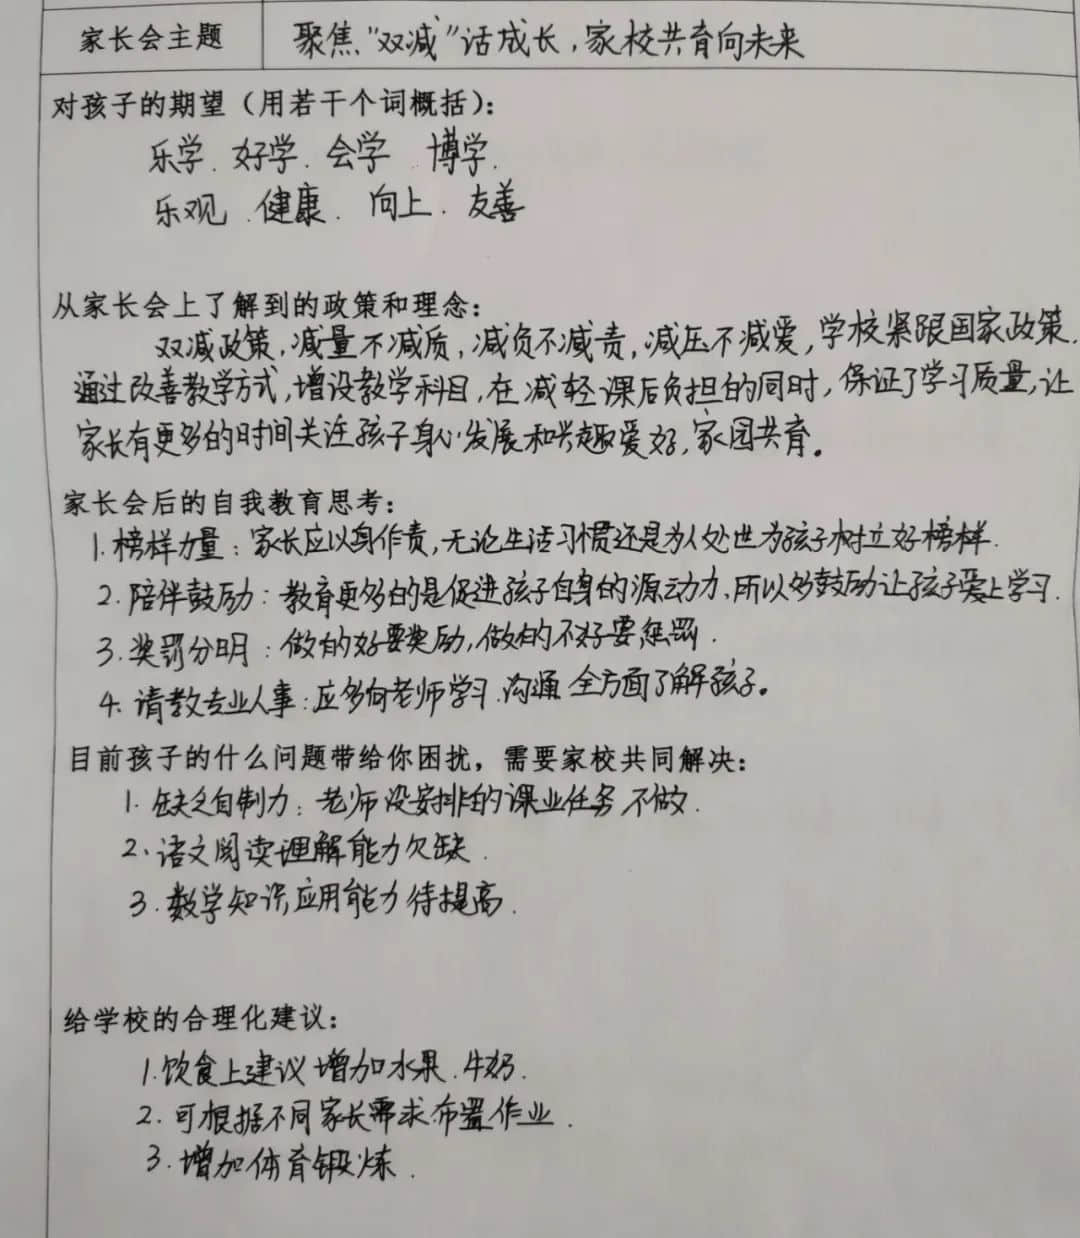 家长会主题 聚焦"双减"话成长,家校共育向未来
对孩子的期望（用若干个词概括）：
乐学. 好学. 会学 . 博学.
乐观 . 健康. 向上. 友善
从家长会上了解到的政策和理念：
双减政策,减量不减质,减负不减责,减压不减爱,学校紧跟国家政策.
通过改善教学方式,增设教学科目,在减轻课后负担的同时,保证了学习质量,让
家长有更多的时间关注孩子身心发展和兴趣爱好,家园共育。
家长会后的自我教育思考：
1.榜样力量：家长应以身作责,无论生活习惯还是为人处世为孩子树立好榜样.
2.陪伴鼓励：教育更多的是促进孩子自身的源动力,所以多鼓励让孩子爱上学习.
3.奖罚分明：做的好要奖励,做的不好要惩罚.
4.请教专业人事：应多向老师学习.沟通 全方面了解孩子。
目前孩子的什么问题带给你困扰，需要家校共同解决：
1.缺乏自制力：老师没安排的课业任务不做.
2.语文阅读理解能力欠缺.
3.数学知识应用能力待提高.
给学校的合理化建议：
1.饮食上建议增加水果.牛奶.
2.可根据不同家长需求布置作业.
3.增加体育锻炼.